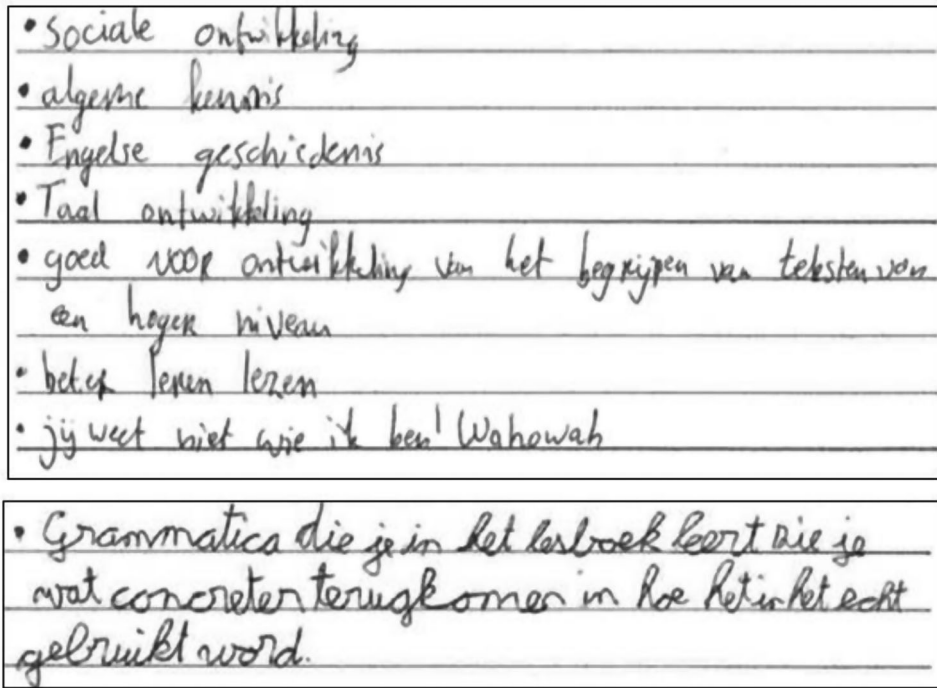 • Sociale ontwikkeling
• algeme kennis
• Engelse geschiedenis
• Taal ontwikkeling
• goed voor ontwikkeling van het begrijpen van teksten van
een hoger niveau
• beter leren lezen
• jij weet niet wie ik ben! Wahowah
• Grammatica die je in het lesboek leert zie je
wat concreter terugkomen in hoe het in het echt
gebruikt word.